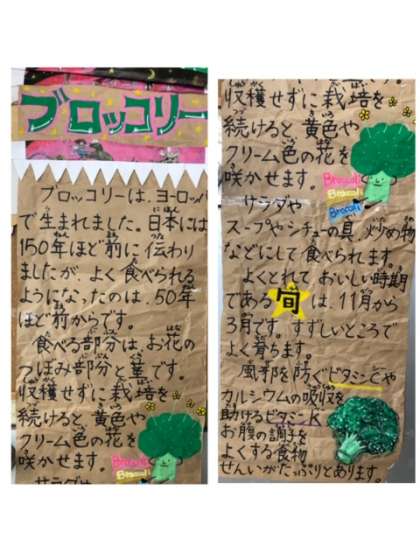 ブロッコリー
ブロッコリーは、ヨーロッパ
で生まれました。日本には
150年ほど前に伝わり
ましたが、よく食べられる
ようになったのは、50年
ほど前からです。
食べる部分は、お花の
つぼみ部分と茎です。
収穫せずに栽培を
続けると、黄色や
クリーム色の花を
咲かせます。
Broccoli
Broccoli
サラダや
収穫せずに栽培を
続けると、黄色や
クリーム色の花を
咲かせます。
Broccoli
Broccoli
Broccoli
サラダや
スープやシチューの具、炒め物
などにして食べられます。
よくとれて、おいしい時期
である旬は、11月から
3月です。すずしいところで
よく育ちます。
風邪を防ぐビタミンCや
カルシウムの吸収を
助けるビタミンK
お腹の調子を
よくする食物
せんいがたっぷりとあります。